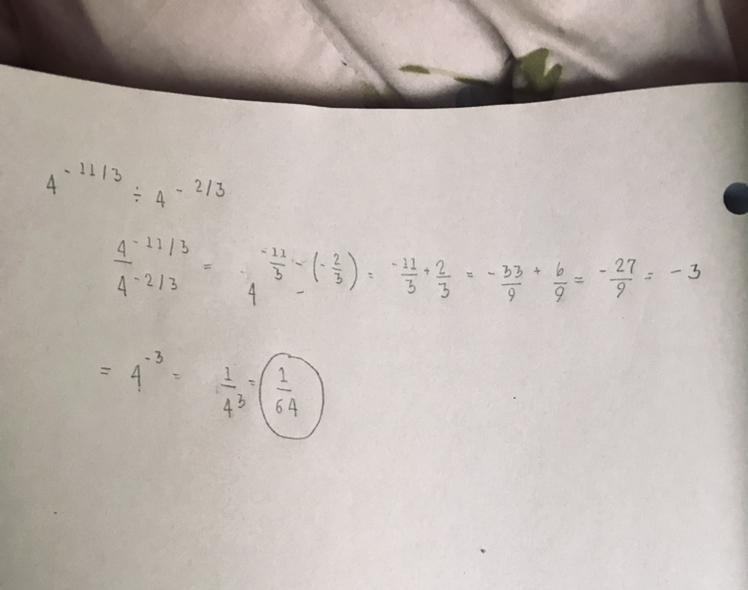 4^-11/3 ÷ 4^-2/3
4^-11/3 / 4^-2/3 = 4^(-11/3 - (-2/3)) = -11/3 + 2/3 = -33/9 + 6/9 = -27/9 = -3
= 4^-3 = 1/4^3 = 1/64